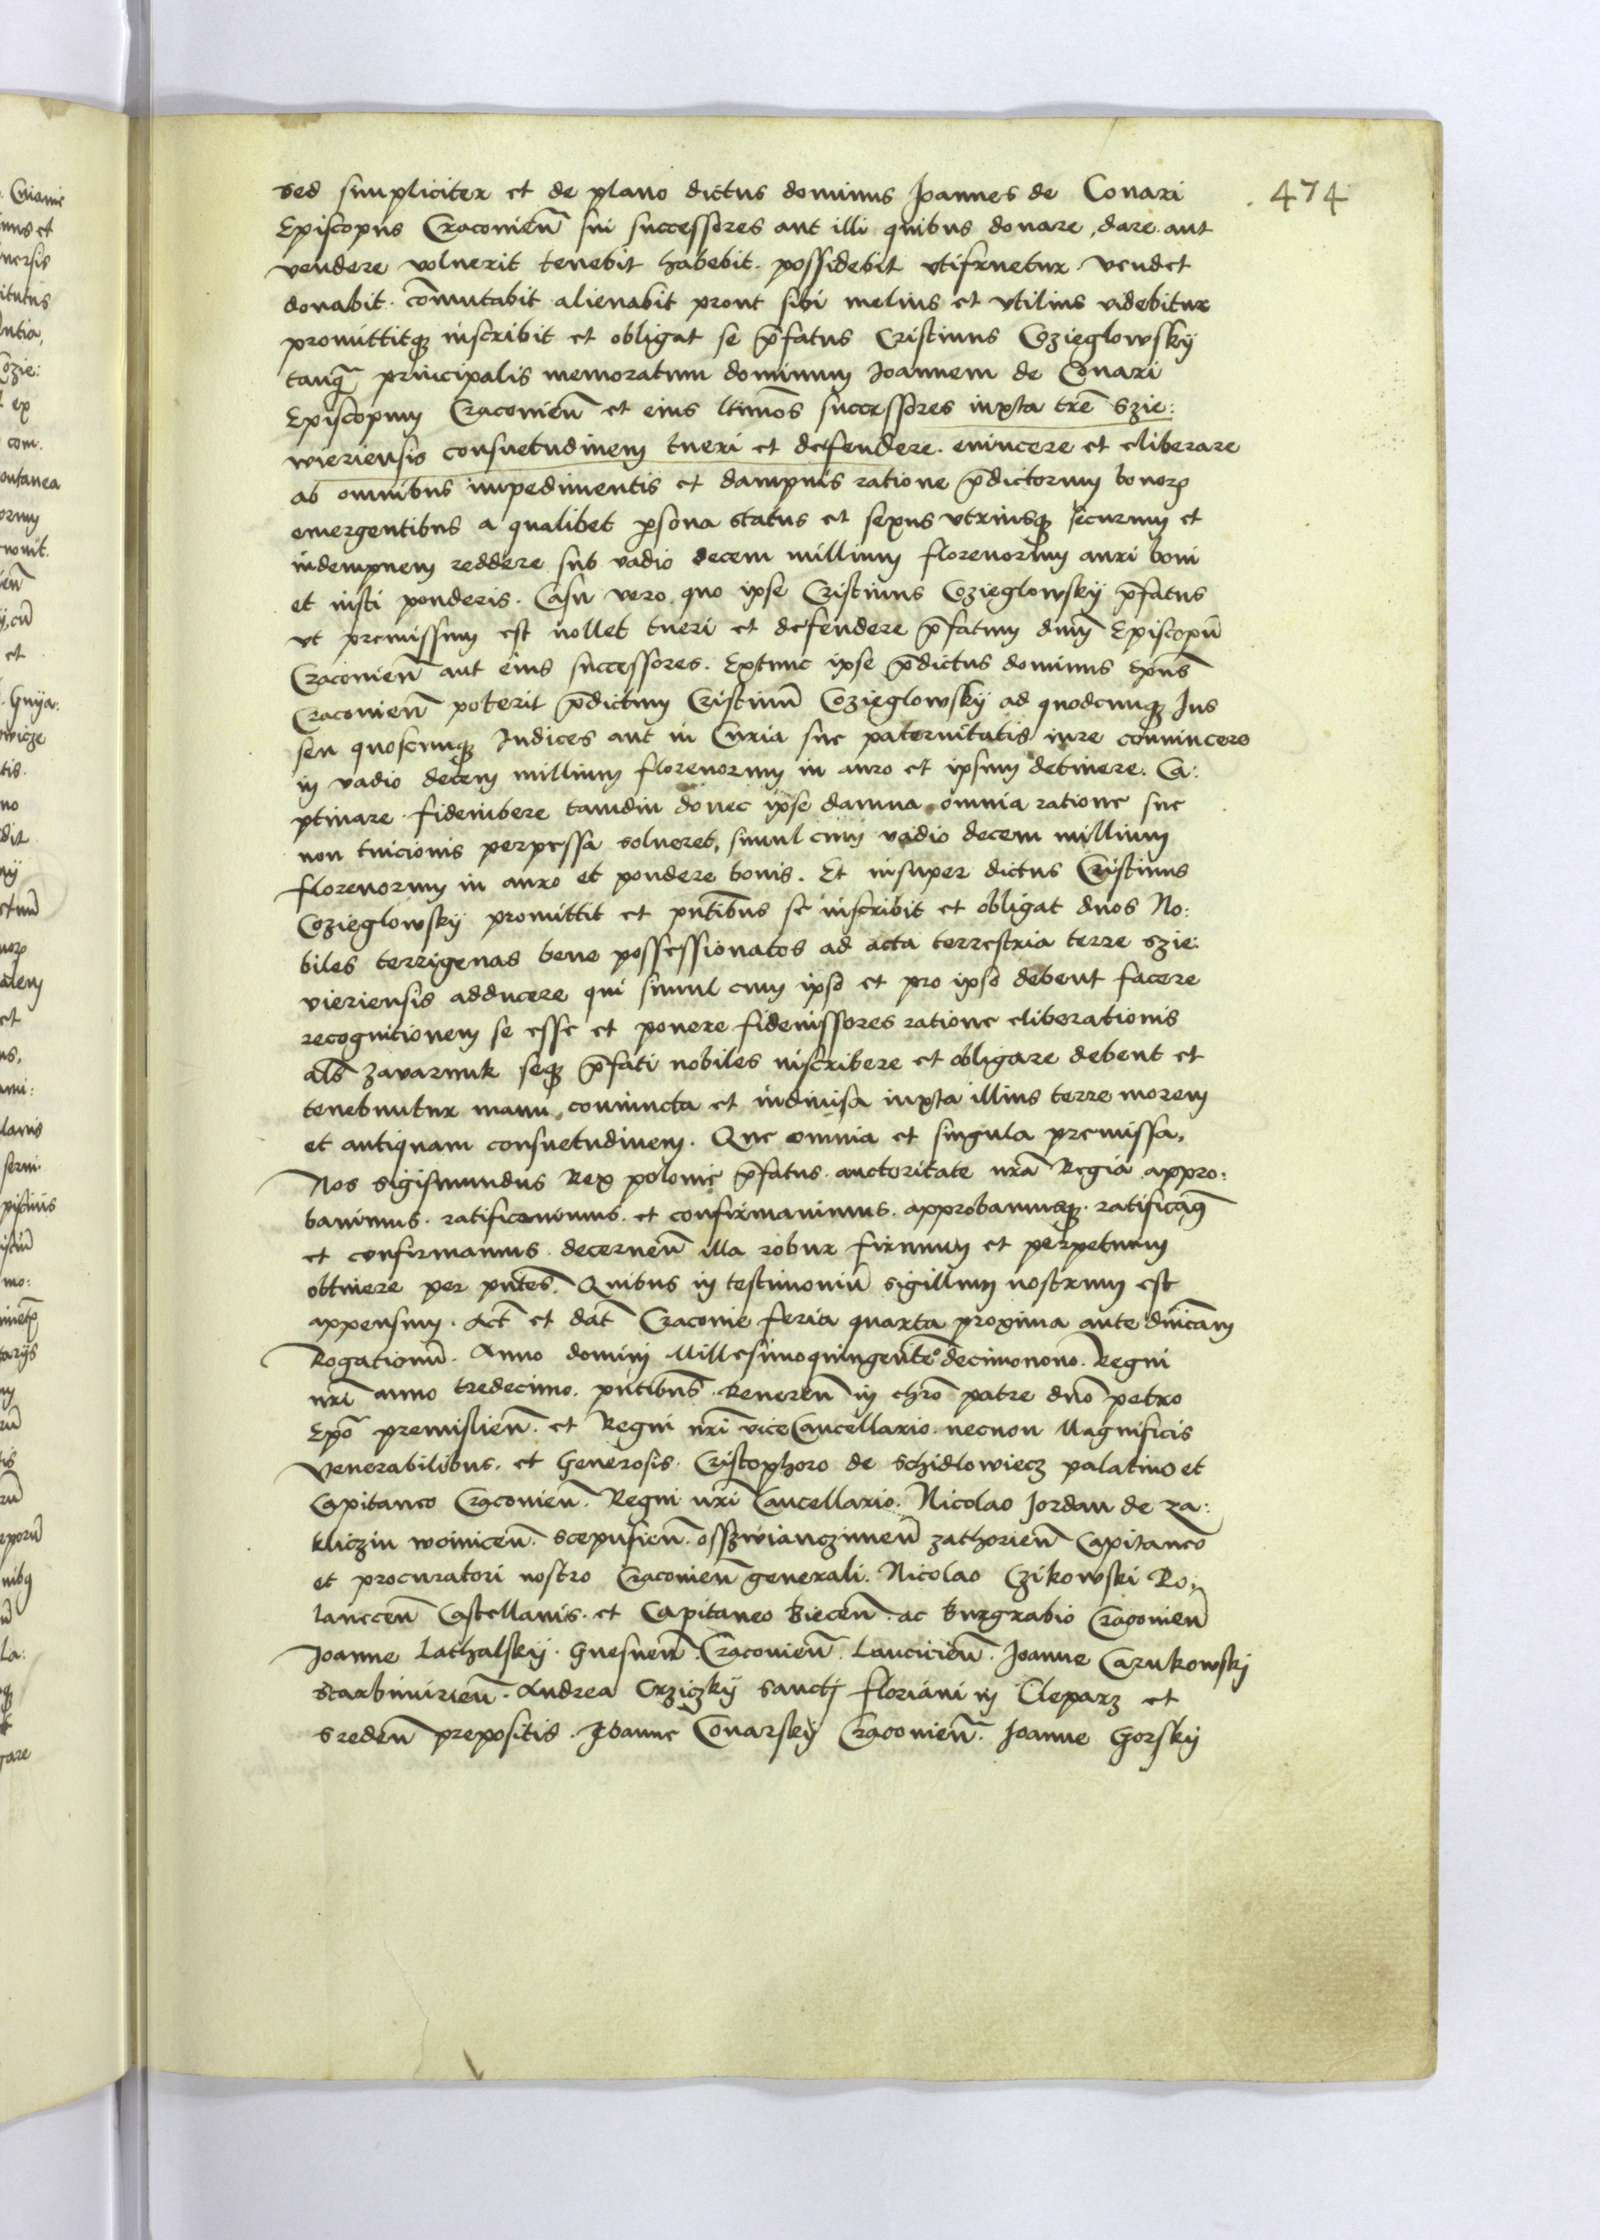 474
sed simpliciter et de plano dictus dominus Joannes de Conari
Episcopus Cracovieñ sui successores aut illi quibus donare, dare aut
vendere voluerit tenebit habebit. possidebit vtifruetur. vendet
donabit. com̄utabit alienabit prout sibi melius et vtilius videbitur
promittitqꝫ inscribit et obligat se p̄fatus Cristinus Cozieglowskÿ
tanq̄ principalis memoratum dominum Joannem de Conari
Episcopum Cracovieñ et eius ltimōs successores iuxta trē Szie:
wieriensis consuetudinem tueri et defendere. evincere et eliberare
ab omnibus impedimentis et dampnis ratione p̄dictorum bonorꝝ
emergentibus a qualibet ꝑsona status et sexus vtriusqꝫ securum et
indempnem reddere sub vadio decem millium florenorum auri boni
et iusti ponderis. Casu vero quo ipse Cristinus Cozieglowskÿ p̄fatus
vt premissum est nollet tueri et defendere p̄fatum dnū Episcopū
Cracovieñ aut eius successores. Extunc ipse p̄dictus dominus Epūs
Cracovieñ poterit p̄dictum Cristinū Cozieglowskÿ ad quodcunqꝫ Jus
seu quoscunqꝫ Judices aut in Curia sue paternitatis iure convincere
in vadio decem millium florenorum in auro et ipsum detinere. Ca:
ptivare fideiubere tamdiu donec ipse damna omnia ratione sue
non tuicionis perpessa solveret, simul cum vadio decem millium
florenorum in auro et pondere bonis. Et insuper dictus Cristinus
Cozieglowskÿ promittit et pn̄tibus se inscribit et obligat duos No:
biles terrigenas bene possessionatos ad acta terrestria terre Szie:
vieriensis adducere qui simul cum ipso et pro ipso debent facere
recognitionem se esse et ponere fideiussores ratione eliberationis
als̄ zavarunk seqꝫ p̄fati nobiles inscribere et obligare debent et
tenebuntur manu coniuncta et indivisa iuxta illius terre morem
et antiquam consuetudinem. Que omnia et singula premissa,
Nos Sigismundus Rex polonie p̄fatus auctoritate nrā Regia appro:
bavimus. ratificavimus. et confirmavimus. approbamusqꝫ. ratificaqꝫ
et confirmamus. decerneñ illa robur firmum et perpetuum
obtinere per pn̄tes. Quibus in testimoniū sigillum nostrum est
appensum. Act̄ et dat̄ Cracovie feria quarta proxima ante dn̄icam
Rogationū. Anno domini Millesimoquingente° decimonono. Regni
nrī anno tredecimo. pn̄tibus. Revereñ in chrō patre dnō petro
Epō premislieñ. et Regni nrī viceCancellario. necnon Magnificis
Venerabilibus. et Generosis. Cristophoro de Schidlowiecz palatino et
Capitaneo Cracovieñ. Regni nrī Cancellario. Nicolao Jordan de za:
kliczin woiniceñ. Scepusieñ. osszwianczimeñ zathorieñ Capitaneo
et procuratori nostro Cracovieñ generali. Nicolao Czikowski Po:
lanecceñ Castellanis. et Capitaneo Bieceñ. ac Burgrabio Cracovieñ
Joanne Lathalskÿ. Gnesneñ. Cracovieñ. Lancicieñ. Joanne Carnkowskÿ
Scarbimirieñ. Andrea Crziczkÿ Sanctj floriani in Cleparz et
Sredeñ prepositis. Joanne Conarskÿ Cracovieñ. Joanne Gorskÿ